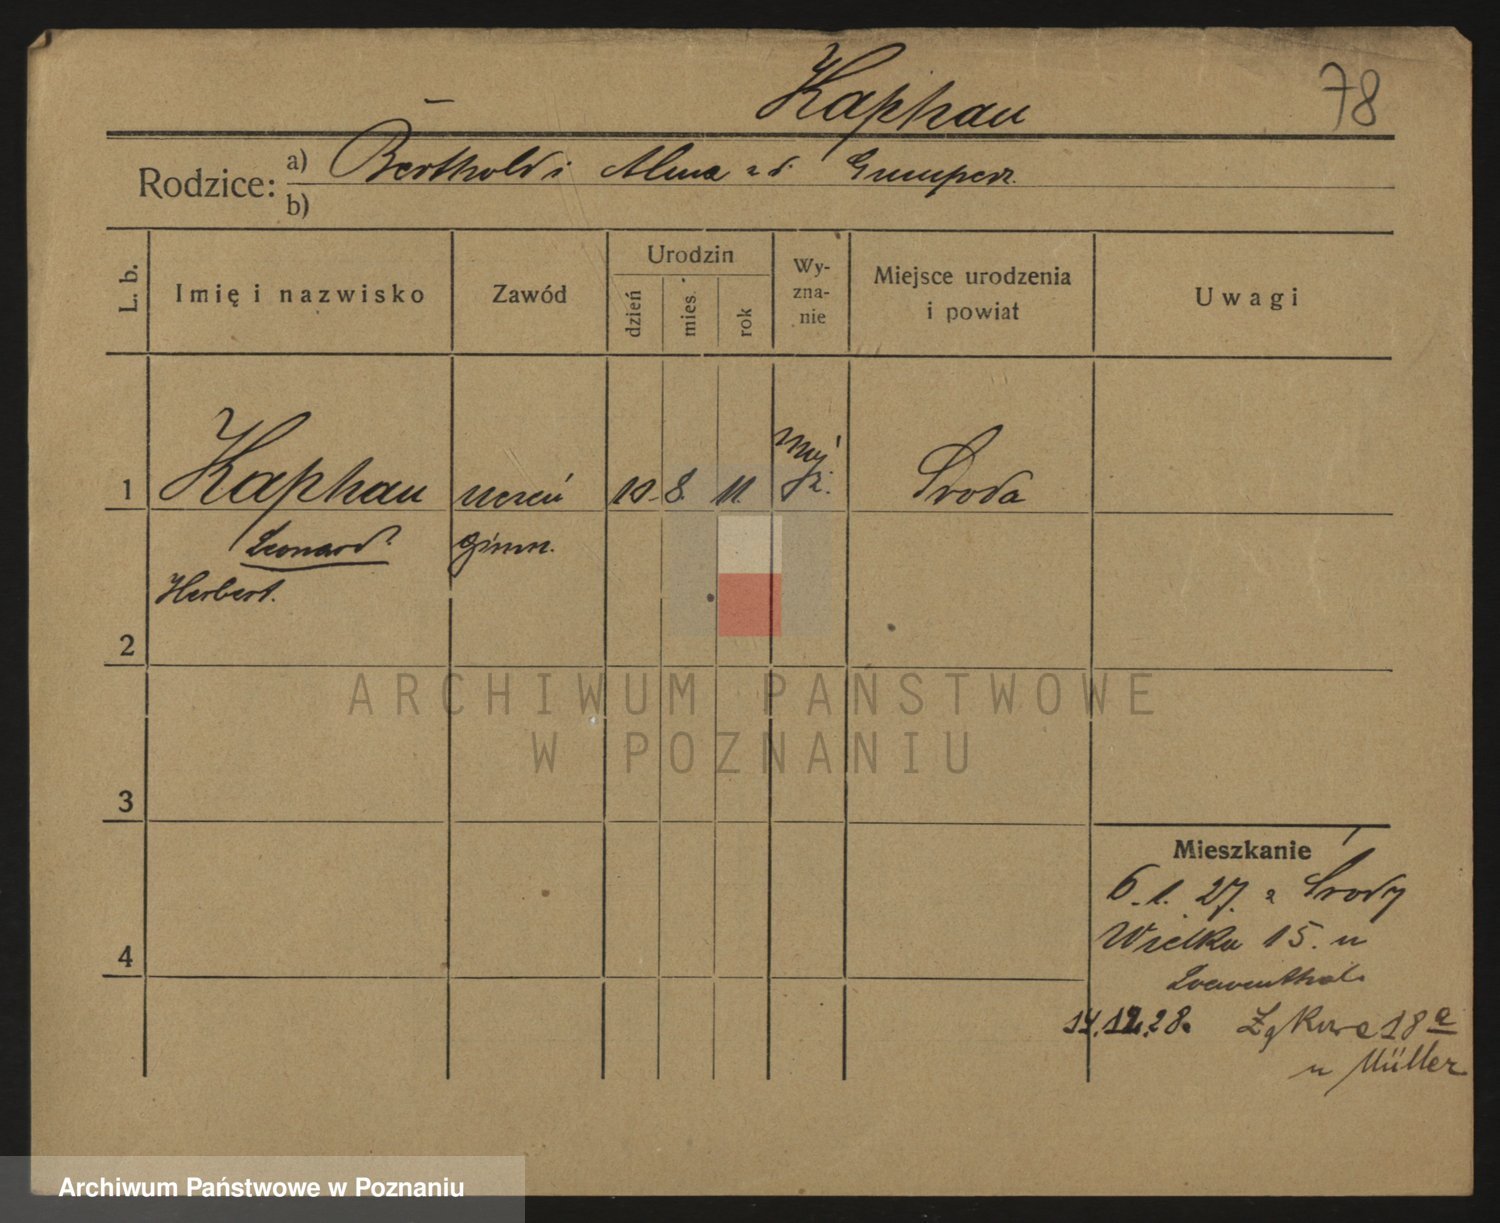 Kaphan 78
Rodzice: a) Berthold i Alma z d. Gumperz.
b)
L. b. Imię i nazwisko Zawód Urodzin dzień mies. rok Wyzna-nie Miejsce urodzenia i powiat Uwagi
1 Kaphan uczeń 10. 8. 11. mojż. Środa
Leonard gimn.
Herbert.
2
3
4
Mieszkanie
6. 1. 27. z Środy
Wielka 15. u
Loewenthal.
14.12.28. Łąkowa 18 a
u Müller
ARCHIWUM PAŃSTWOWE
W POZNANIU
Archiwum Państwowe w Poznaniu